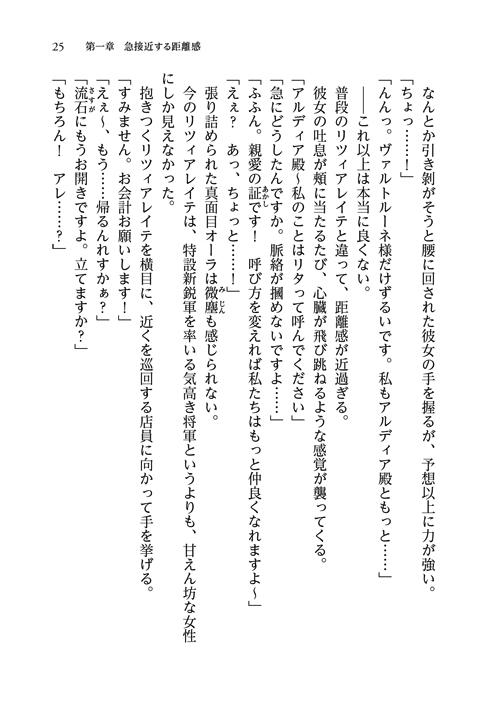 25　第一章　急接近する距離感
　なんとか引き剝がそうと腰に回された彼女の手を握るが、予想以上に力が強い。
「ちょっ……！」
「んんっ。ヴァルトルーネ様だけずるいです。私もアルディア殿ともっと……」
　――これ以上は本当に良くない。
　普段のリツィアレイテと違って、距離感が近過ぎる。
　彼女の吐息が頰に当たるたび、心臓が飛び跳ねるような感覚が襲ってくる。
「アルディア殿～私のことはリタって呼んでください」
「急にどうしたんですか。脈絡が摑めないですよ……」
「ふふん。親愛の証です！　呼び方を変えれば私たちはもっと仲良くなれますよ～」
「えぇ？　あっ、ちょっと……！」
　張り詰められた真面目オーラは微塵も感じられない。
　今のリツィアレイテは、特設新鋭軍を率いる気高き将軍というよりも、甘えん坊な女性
にしか見えなかった。
　抱きつくリツィアレイテを横目に、近くを巡回する店員に向かって手を挙げる。
「すみません。お会計お願いします！」
「えぇ～、もう……帰るんれすかぁ？」
「流石にもうお開きですよ。立てますか？」
「もちろん！　アレ……？」